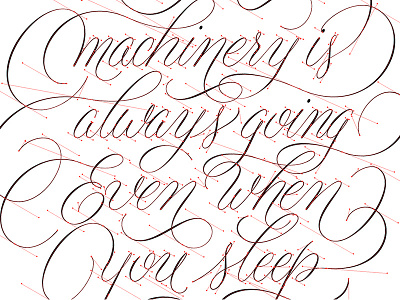 machinery is
always going
Even when
you sleep